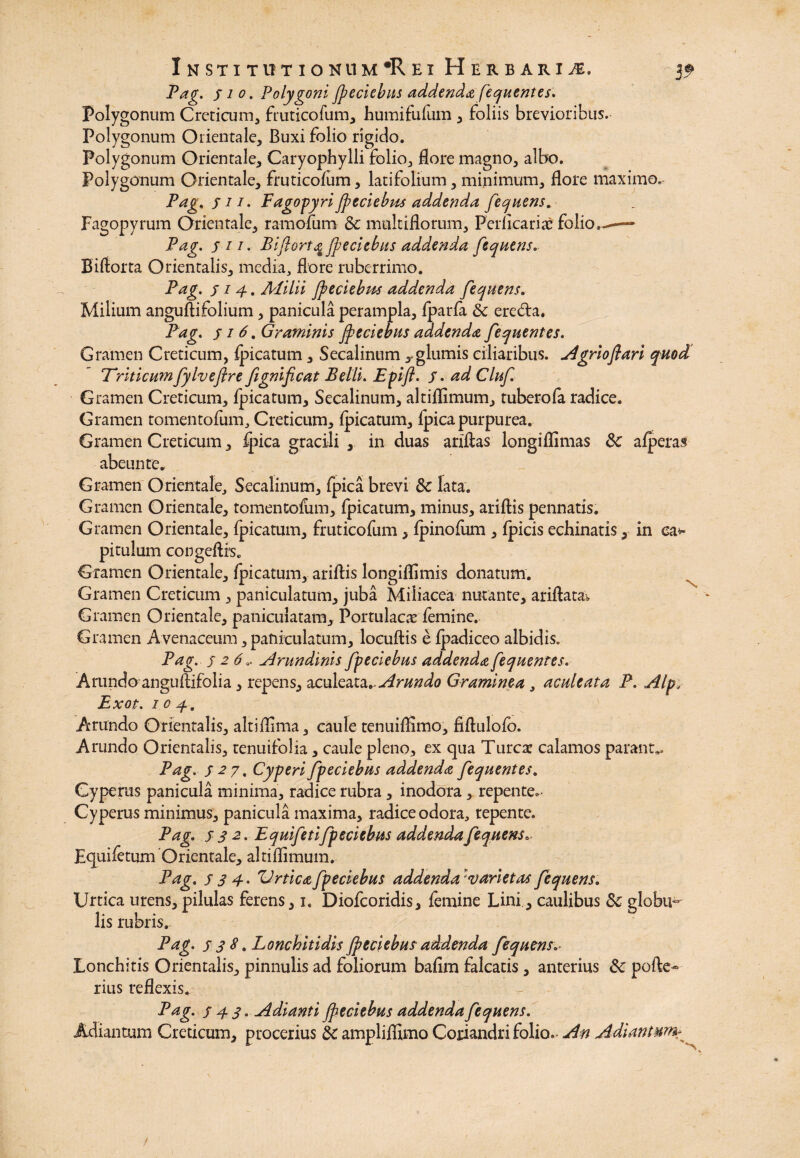 INSTITUTIONUM REI HERBARIÆ. 39
Pag. 510. Polygoni ſpeciebus addendæ ſequentes.
Polygonum Creticum, fruticoſum, humifuſum, foliis brevioribus.
Polygonum Orientale, Buxi folio rigido.
Polygonum Orientale, Caryophylli folio, flore magno, albo.
Polygonum Orientale, fruticoſum, latifolium, minimum, flore maximo.
Pag. 511. Fagopyri ſpeciebus addenda ſequens.
Fagopyrum Orientale, ramoſum & multiflorum, Perſicariæ folio.
Pag. 511. Biſtortæ ſpeciebus addenda ſequens.
Biſtorta Orientalis, media, flore ruberrimo.
Pag. 514. Milii ſpeciebus addenda ſequens.
Milium anguſtifolium, paniculâ perampla, ſparſa & erecta.
Pag. 516. Graminis ſpeciebus addendæ ſequentes.
Gramen Creticum, ſpicatum, Secalinum, glumis ciliaribus. Agrioſtari quod
Triticum ſylveſtre ſignificat Belli. Epiſt. 5. ad Cluſ.
Gramen Creticum, ſpicatum, Secalinum, altiſſimum, tuberoſa radice.
Gramen tomentoſum, Creticum, ſpicatum, ſpica purpurea.
Gramen Creticum, ſpica gracili, in duas ariſtas longiſſimas & aſperas
abeunte.
Gramen Orientale, Secalinum, ſpicâ brevi & lata.
Gramen Orientale, tomentoſum, ſpicatum, minus, ariſtis pennatis.
Gramen Orientale, ſpicatum, fruticoſum, ſpinoſum, ſpicis echinatis, in ca-
pitulum congeſtis.
Gramen Orientale, ſpicatum, ariſtis longiſſimis donatum.
Gramen Creticum, paniculatum, jubâ Miliacea nutante, ariſtata.
Gramen Orientale, paniculatam, Portulacæ ſemine.
Gramen Avenaceum, paniculatum, locuſtis è ſpadiceo albidis.
Pag. 526. Arundinis ſpeciebus addendæ ſequentes.
Arundo anguſtifolia, repens, aculeata. Arundo Graminea, aculeata P. Alp.
Exot. 104.
Arundo Orientalis, altiſſima, caule tenuiſſimo, fiſtuloſo.
Arundo Orientalis, tenuifolia, caule pleno, ex qua Turcæ calamos parant.
Pag. 527. Cyperi ſpeciebus addendæ ſequentes.
Cyperus paniculâ minima, radice rubra, inodora, repente.
Cyperus minimus, paniculâ maxima, radice odora, repente.
Pag. 532. Equiſeti ſpeciebus addenda ſequens.
Equiſetum Orientale, altiſſimum.
Pag. 534. Urticæ ſpeciebus addenda varietas ſequens.
Urtica urens, pilulas ferens, 1. Dioſcoridis, ſemine Lini, caulibus & globu-
lis rubris.
Pag. 538. Lonchitidis ſpeciebus addenda ſequens.
Lonchitis Orientalis, pinnulis ad foliorum baſim falcatis, anterius & poſte-
rius reflexis.
Pag. 543. Adianti ſpeciebus addenda ſequens.
Adiantum Creticum, procerius & ampliſſimo Coriandri folio. An Adiantum